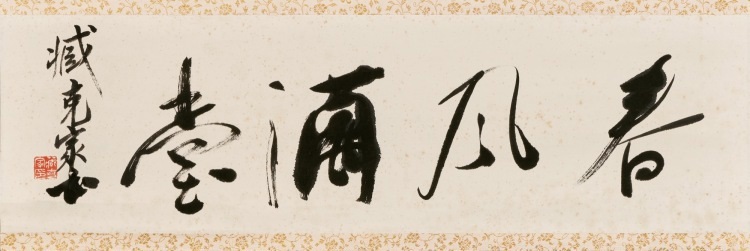 春风满堂
臧克家书